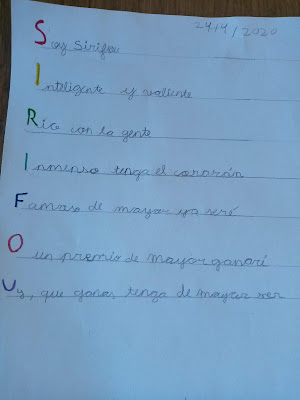 24/4/2020
Soy Sirifou
Inteligente y valiente
Río con la gente
Inmenso tengo el corazón
Famoso de mayor ya seré
O un premio de mayor ganaré
Uy, que ganas tengo de mayor ser